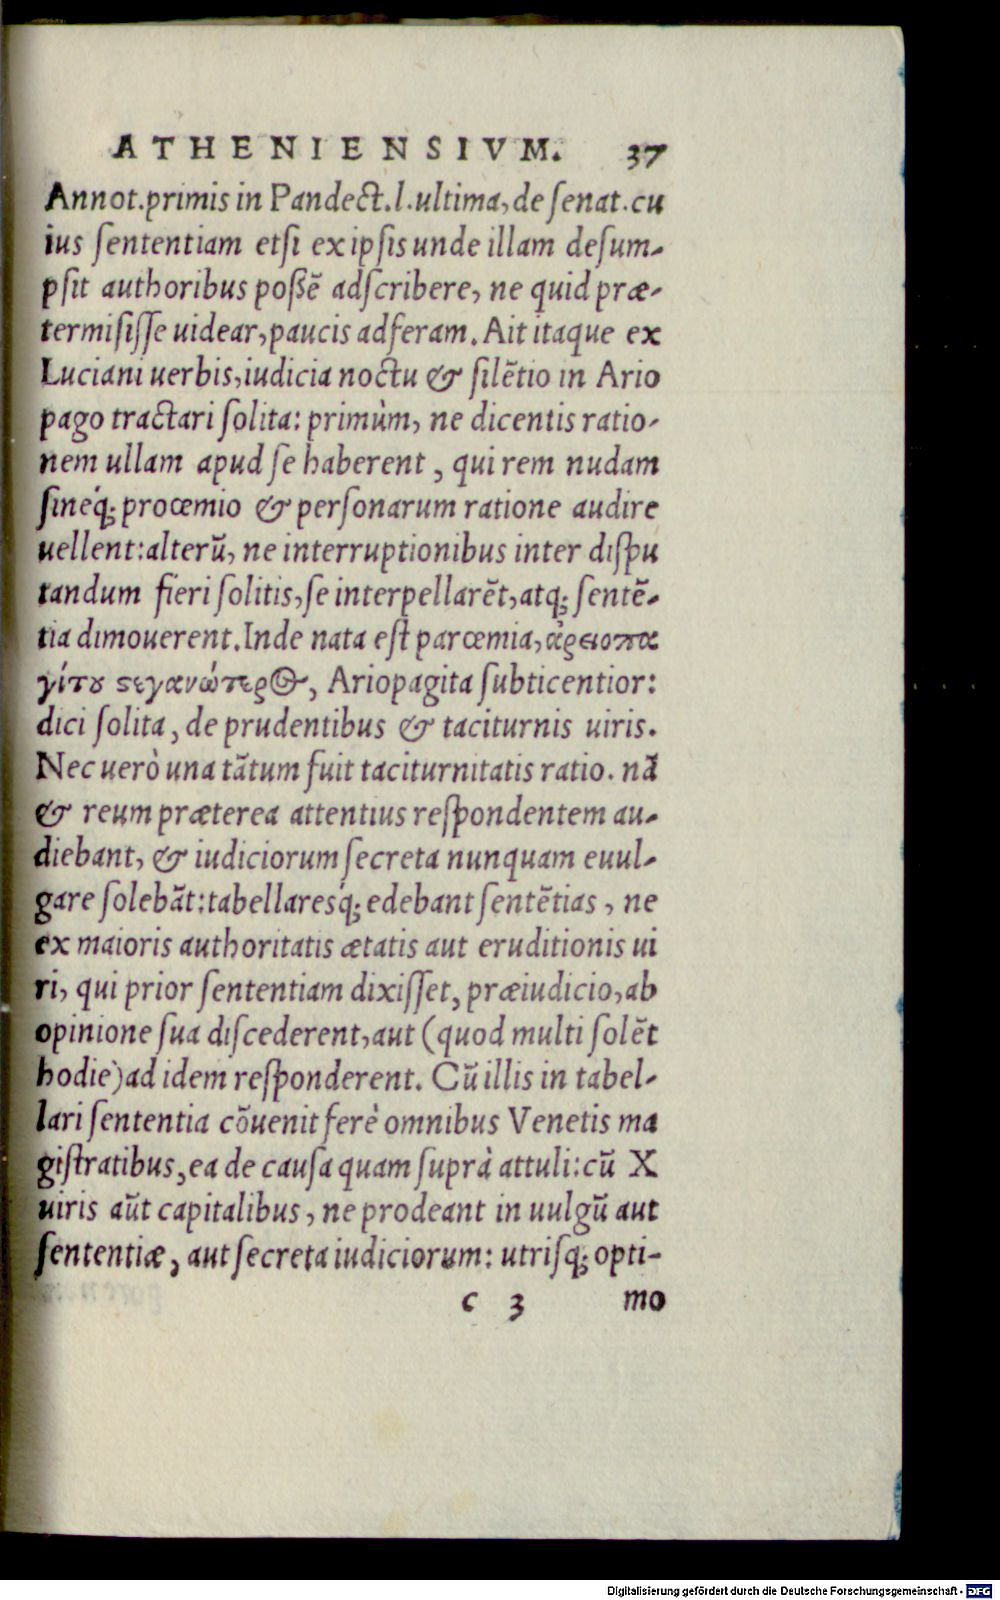 ATHENIENSIVM. 37
Annot.primis in Pandect.l.ultima, de ſenat.cu
ius ſententiam etſi ex ipſis unde illam deſum-
pſit authoribus poßẽ adſcribere, ne quid præ-
termiſiſſe uidear, paucis adferam. Ait itaque ex
Luciani uerbis, iudicia noctu & ſilẽtio in Ario
pago tractari ſolita: primùm, ne dicentis ratio-
nem ullam apud ſe haberent, qui rem nudam
ſineq́; proœmio & perſonarum ratione audire
uellent: alterũ, ne interruptionibus inter diſpu
tandum fieri ſolitis, ſe interpellarẽt, atq; ſentẽ-
tia dimouerent. Inde nata eſt parœmia, ἀρειοπα
γίτου στεγανώτερος, Ariopagita ſubticentior:
dici ſolita, de prudentibus & taciturnis uiris.
Nec uerò una tãtum fuit taciturnitatis ratio. nã
& reum præterea attentius reſpondentem au-
diebant, & iudiciorum ſecreta nunquam euul-
gare ſolebãt: tabellaresq́; edebant ſentẽtias, ne
ex maioris authoritatis ætatis aut eruditionis ui
ri, qui prior ſententiam dixiſſet, præiudicio, ab
opinione ſua diſcederent, aut (quod multi ſolẽt
hodie) ad idem reſponderent. Cũ illis in tabel-
lari ſententia cõuenit ferè omnibus Venetis ma
giſtratibus, ea de cauſa quam ſuprà attuli: cũ X
uiris aũt capitalibus, ne prodeant in uulgũ aut
ſententiæ, aut ſecreta iudiciorum: utriſq; opti-
c 3 mo
Digitalisierung gefördert durch die Deutsche Forschungsgemeinschaft - DFG